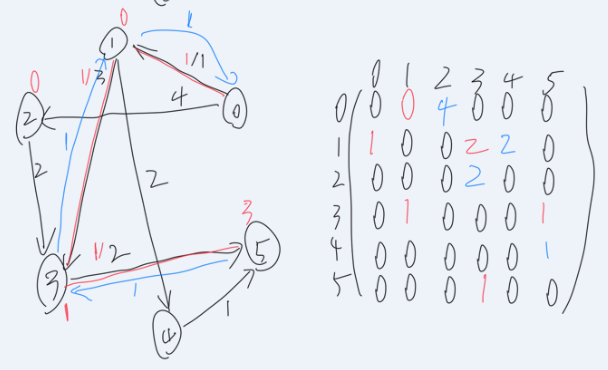 0
1
1
1/3
1/1
0
4
2
0
1
2
2
3
5
1/2
3
1
1
4
1
0 1 2 3 4 5
0 0 0 4 0 0 0
1 1 0 0 2 2 0
2 0 0 0 2 0 0
3 0 1 0 0 0 1
4 0 0 0 0 0 1
5 0 0 0 1 0 0